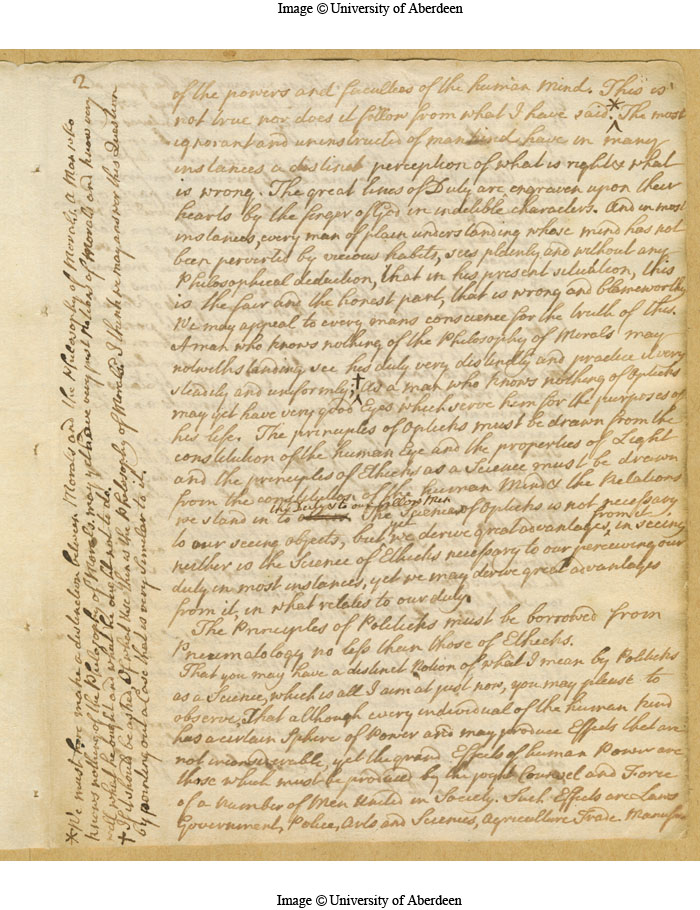 Image © University of Aberdeen
2
of the powers and faculties of the human mind. This is
not true nor does it follow from what I have said.* The most
ignorant and uninstructed of mankind have in many
instances a distinct perception of what is right & what
is wrong. The great lines of Duty are engraven upon their
hearts by the finger of God in indelible characters. And in most
instances, every man of plain understanding whose mind has not
been perverted by vicious habits, sees plainly and without any
Philosophical deduction, that in his present situation, this
is the fair and the honest part, that is wrong and blameworthy
We may appeal to every mans conscience for the truth of this.
A man who knows nothing of the Philosophy of Morals may
notwithstanding see his duty very distinctly and practice it very
steadily and uniformly.† As a man who knows nothing of Opticks
may yet have very good Eyes which serve him for the purposes of
his life. The principles of Opticks must be drawn from the
constitution of the human Eye and the properties of Light
and the principles of Ethicks as a Science must be drawn
from the constitution of the human Mind & the Relations
we stand in to God & to our fellow Men The Science of Opticks is not necessary
to our seeing objects, but yet we derive great advantages from it, in seeing
neither is the Science of Ethicks necessary to our perceiving our
duty in most instances, yet we may derive great advantages
from it, in what relates to our duty.
The Principles of Politicks must be borrowed from
Pneumatology no less than those of Ethicks.
That you may have a distinct Notion of what I mean by Politicks
as a Science, which is all I aim at just now, you may please to
observe, That although every individual of the human kind
has a certain Sphere of Power and may produce Effects that are
not inconsiderable, yet the grand Effects of human Power are
those which must be produced by the joynt Counsel and Force
of a number of Men United in Society. Such Effects are Laws
Government, Police, Arts and Sciences, Agriculture Trade Manufac
* We must here make a distinction between Morals and the Philosophy of Morals. A Man who
knows nothing of the Philosophy of Morals, may yet have very just Notions of Morals and know very
well what he ought and what he ought not to do.
† If it should be asked of what use then is the Philosophy of Morals? I think we may answer this Question
by pointing out a Case that is very similar to it.
Image © University of Aberdeen